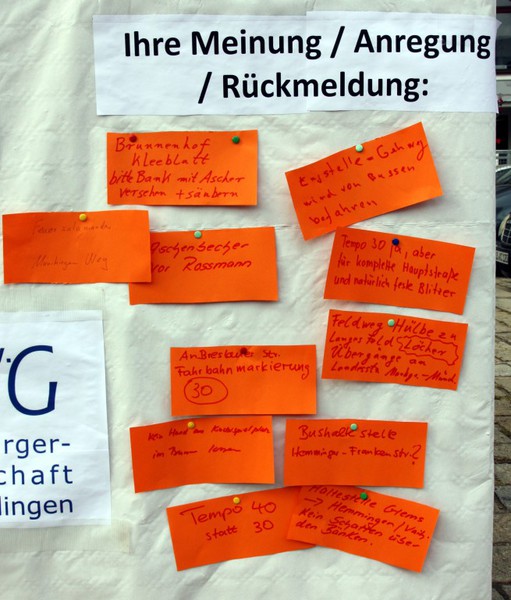 Ihre Meinung / Anregung
/ Rückmeldung:
Brunnenhof
Kleeblatt
bitte Bank mit Ascher
versehen + säubern
Engstelle - Gehweg
wird von Bussen
befahren
Weg
Aschenbecher
vor Rossmann
Tempo 30 ja, aber
für komplette Hauptstraße
und natürlich feste Blitzer
Feldweg Hülbe zu
Langes Feld Löcher
Übergänge an
Landesstr.
An Breslauer Str.
Fahrbahnmarkierung
30
im lassen
Bushaltestelle
Hemminger-Frankenstr.?
Tempo 40
statt 30
Haltestelle Glems
→ Hemmingen/Vaih.
Kein Schatten über
den Bänken.
G
rger-
chaft
dlingen